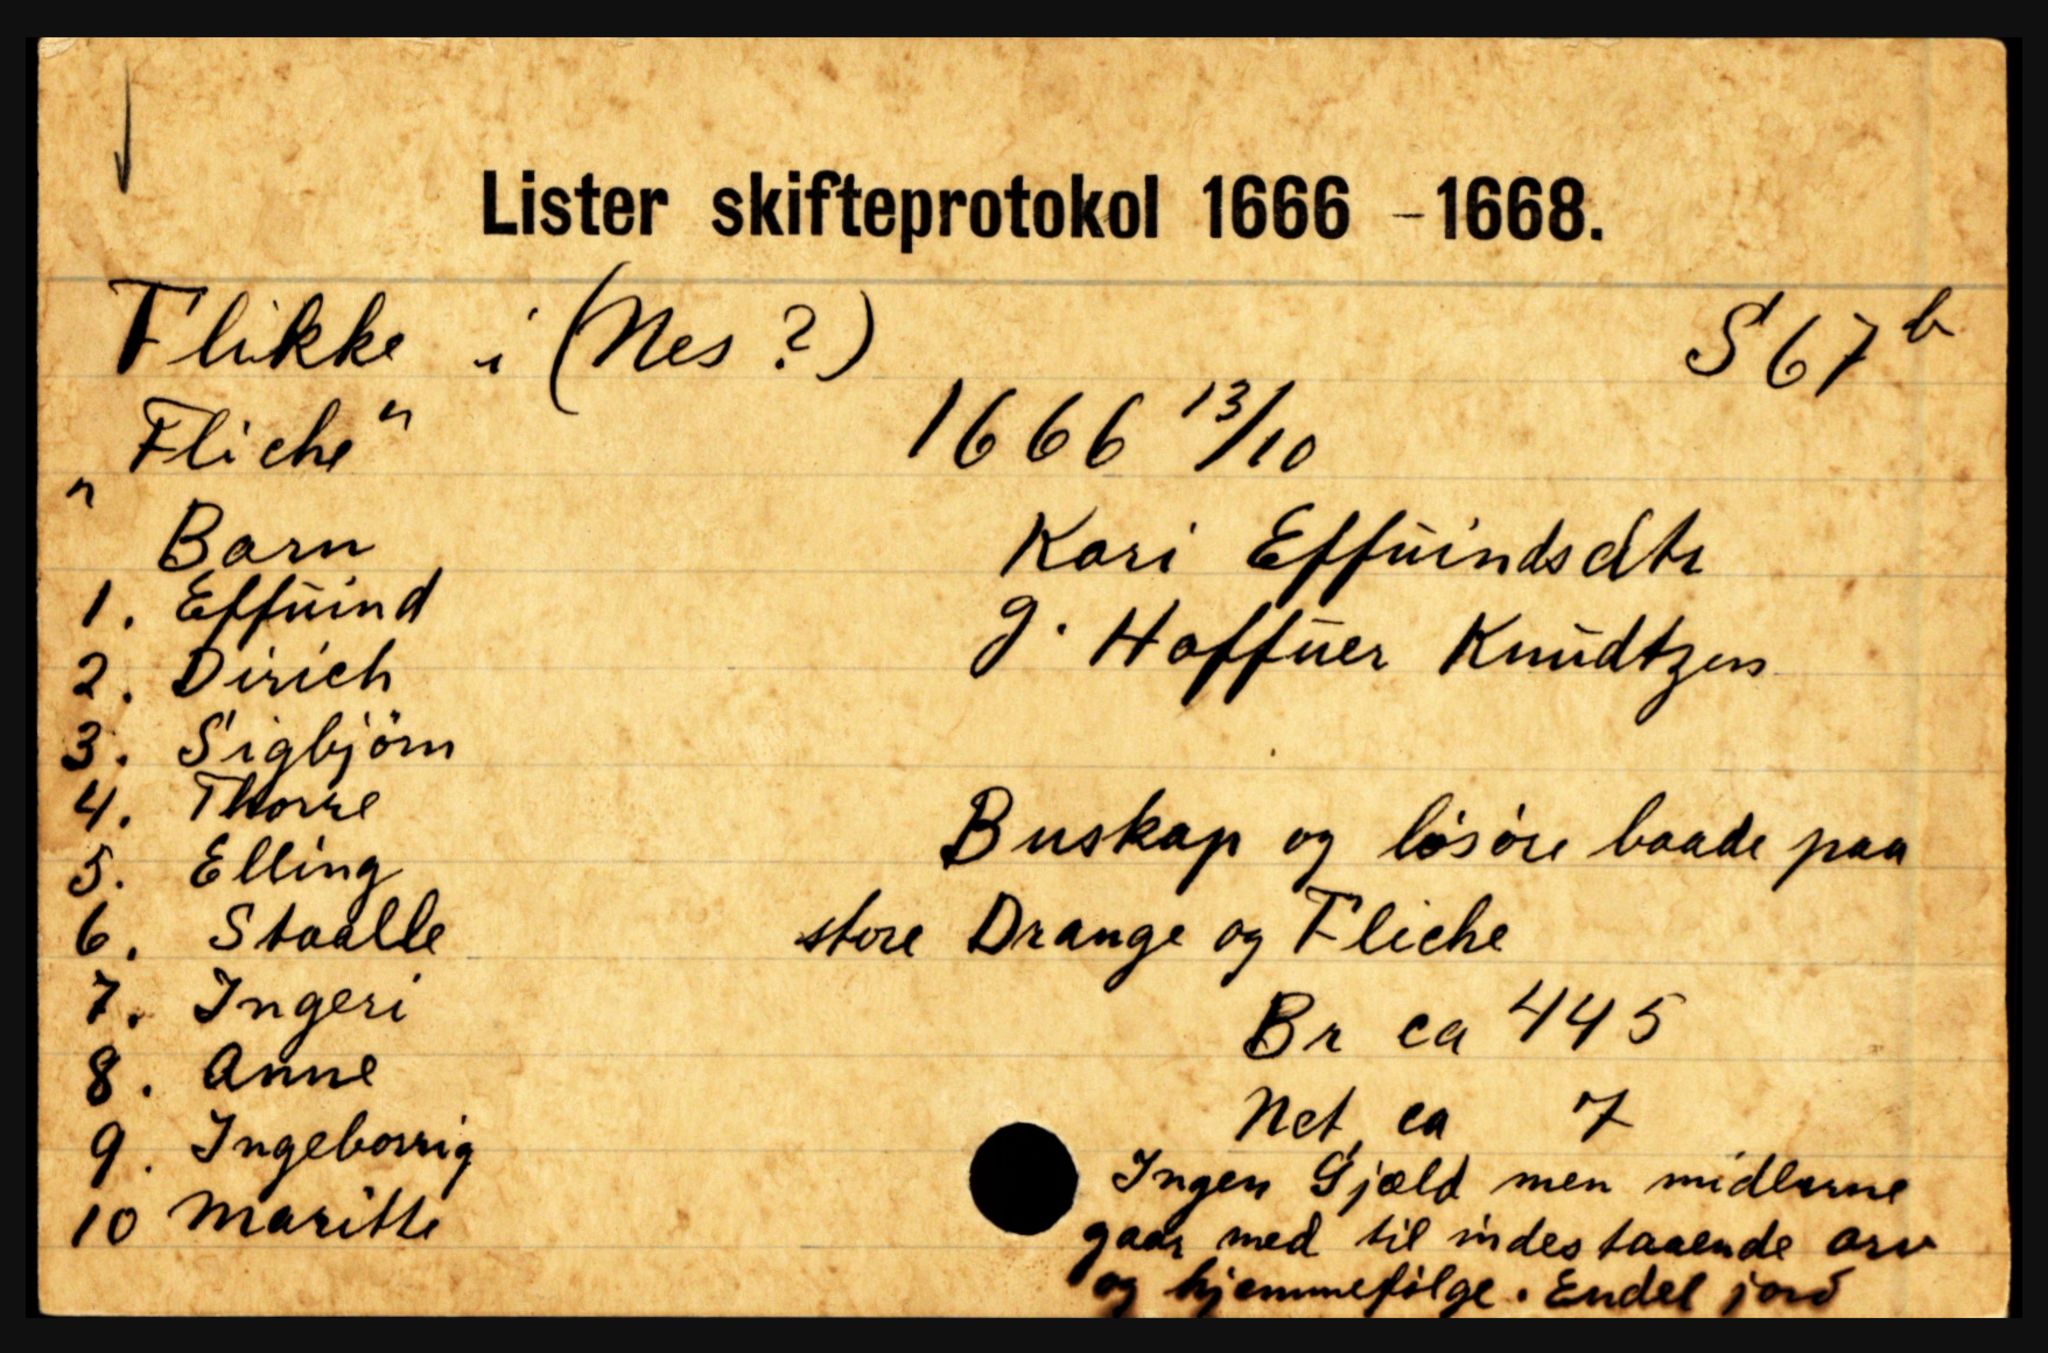 Lister skifteprotokol 1666 - 1668.
Flikke i (Nes ?) S 67 b
"Fliche" 1666 13/10
Barn Kari Effuindsdtr
1. Effuind g. Haffuer Knudtzen
2. Dirich
3. Sigbjörn
4. Thorre
5. Elling Buskap og løsøre baade paa
6. Staalle store Drange og Fliche
7. Ingeri Br ca 445
8. Anne Net ca 7
9. Ingeborrig Ingen Gjæld men midlerne
10 Maritte gaar med til indestaaende arv
og hjemmefølge. Endel jord